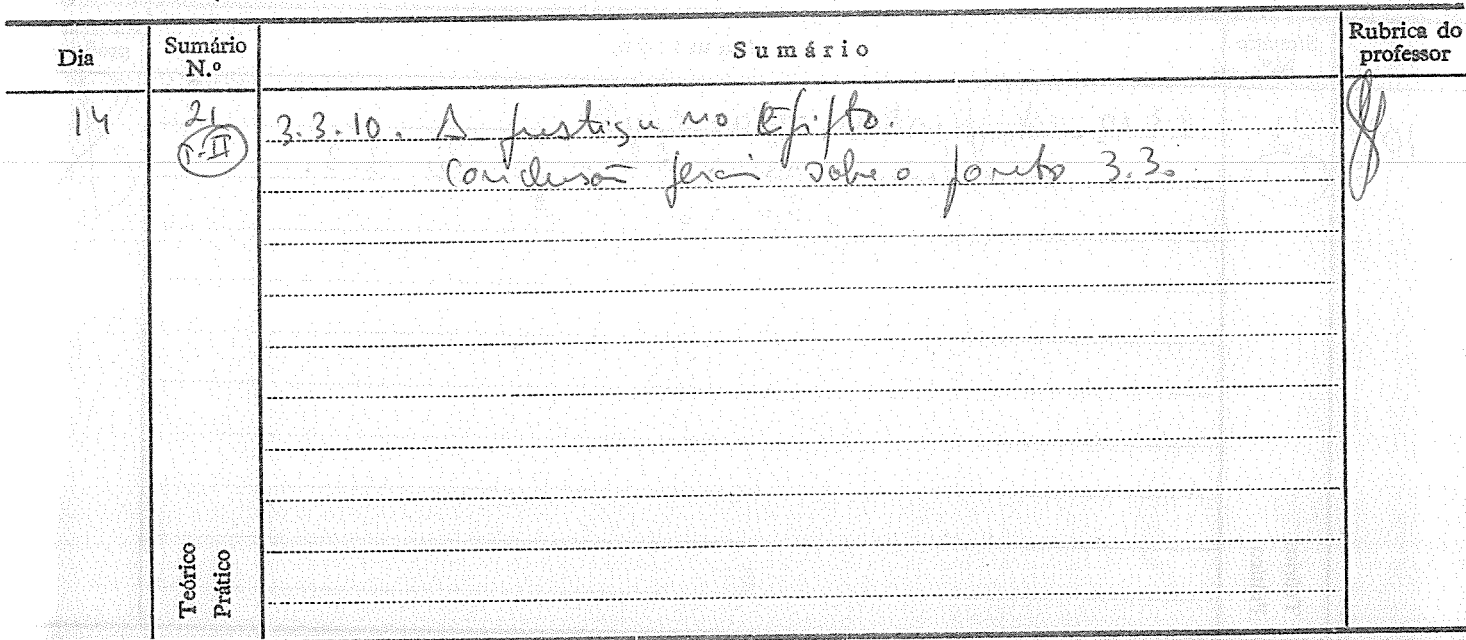 Dia
Sumário N.º
Sumário
Rubrica do professor
14
21
T-II
3.3.10. A justiça no Egipto.
Conclusão gerais sobre o ponto 3.3.
Teórico
Prático